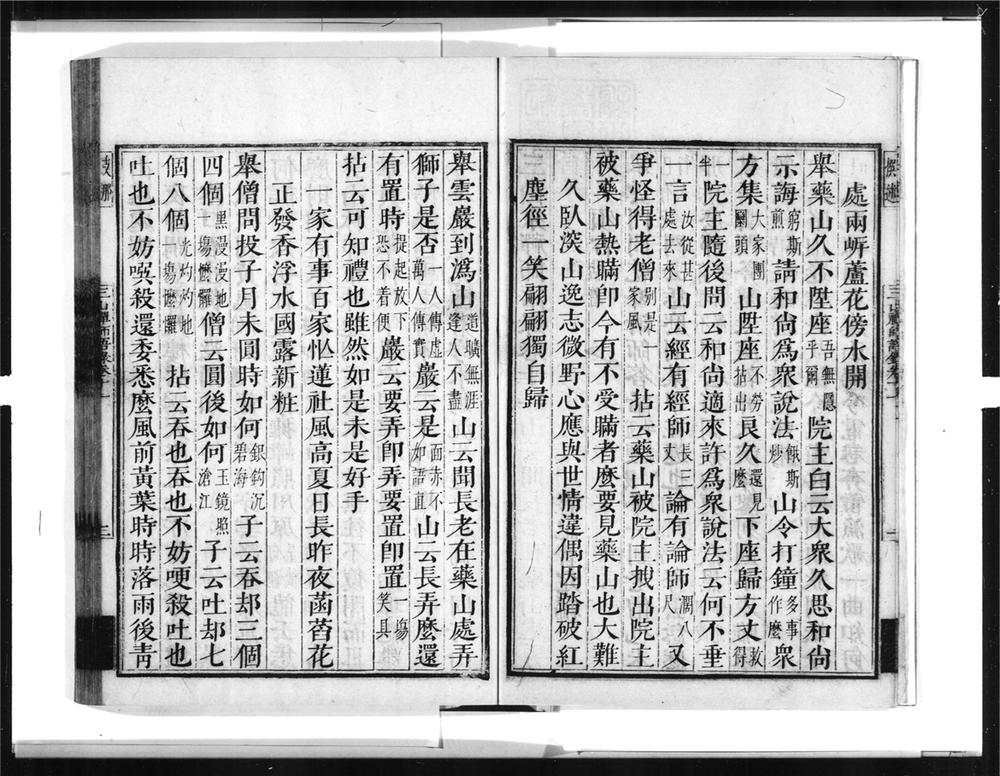 處兩岍蘆花傍水開
舉藥山久不陞座吾無隱乎爾院主白云大衆久思和尙
示誨窮斯煎請和尙爲衆說法餓斯炒山令打鐘多事作麽衆
方集大家團圞頭山陞座不勞拈出良久還見麽下座歸方丈救得一
半院主隨後問云和尙適來許爲衆說法云何不垂
一言汝從甚處去來山云經有經師長三丈論有論師濶八尺又
爭怪得老僧別是一家風拈云藥山被院主拽出院主
被藥山熱瞞卽今有不受瞞者麽要見藥山也大難
久臥深山逸志微野心應與世情違偶因踏破紅
塵徑一笑翩翩獨自歸
舉雲巖到潙山道曠無涯逢人不盡山云聞長老在藥山處弄
獅子是否一人傳虛萬人傳實巖云是面赤不如語直山云長弄麽還
有置時提起放下恐不着便巖云要弄卽弄要置卽置一塲笑具
拈云可知禮也雖然如是未是好手
一家有事百家忙蓮社風高夏日長昨夜菡萏花
正發香浮水國露新粧
舉僧問投子月未圓時如何銀鈎沉碧海子云吞却三個
四個黑漫漫地一塲懡㦬僧云圓後如何玉鏡照滄江子云吐却七
個八個光灼灼地一塲懡㦬拈云吞也吞也不妨哽殺吐也
吐也不妨噀殺還委悉麽風前黃葉時時落雨後靑